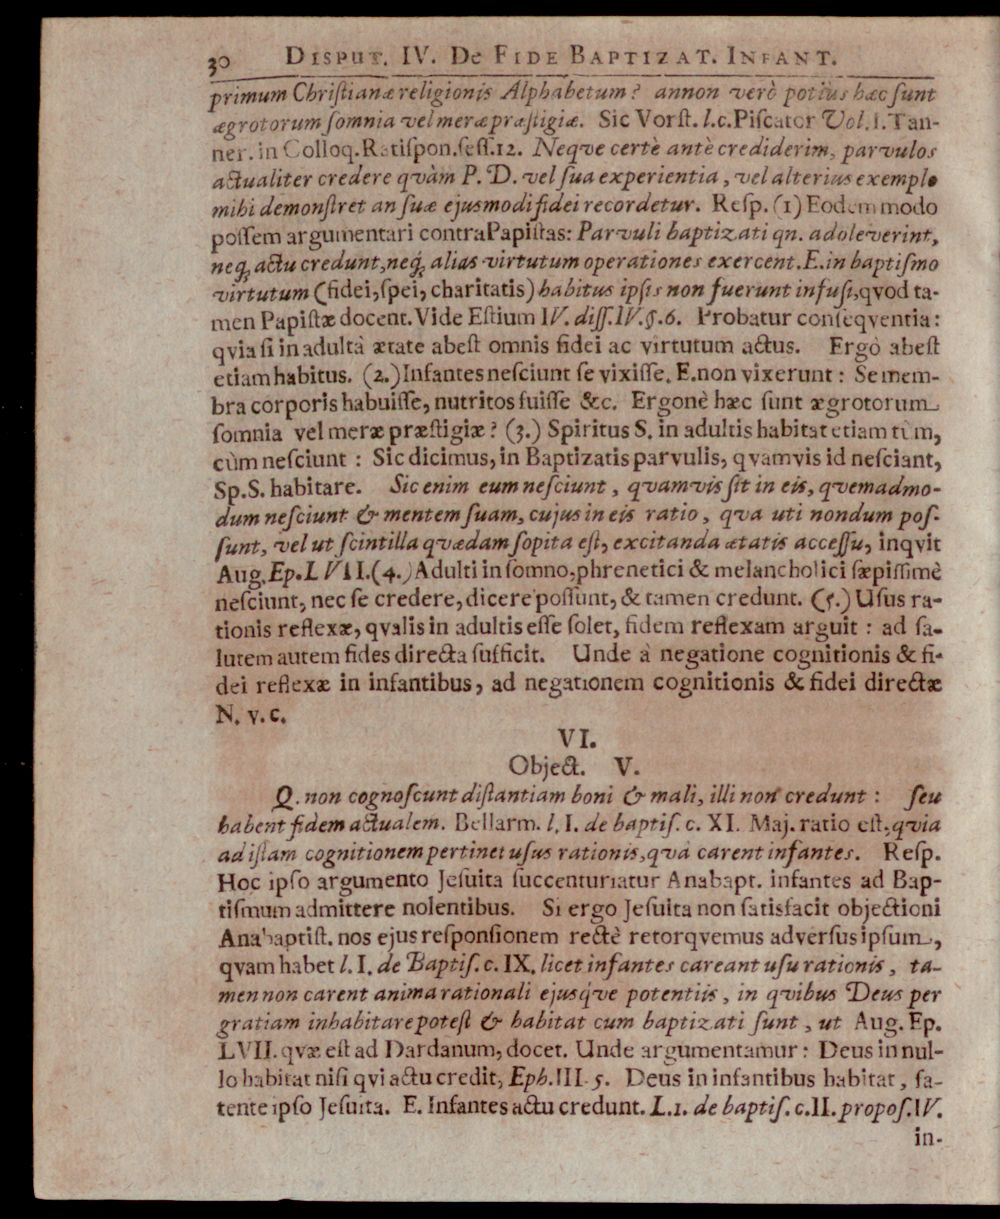 30 DISPUT. IV. De FIDE BAPTIZAT. INFANT.
primum Chriſtianæ religionis Alphabetum? annon verò potius hæc ſunt
ægrotorum ſomnia vel meræ præſtigiæ. Sic Vorſt. l.c. Piſcator Vol. I. Tan-
ner. in Colloq. Ratiſpon. ſeſſ. 12. Neqve certè antè crediderim, parvulos
actualiter credere qvàm P. D. vel ſua experientia, vel alterius exemplo
mihi demonſtret an ſuæ ejusmodi fidei recordetur. Reſp. (1) Eodem modo
poſſem argumentari contra Papiſtas: Parvuli baptizati qn. adoleverint,
neq; actu credunt, neq; alias virtutum operationes exercent. E. in baptiſmo
virtutum (fidei, ſpei, charitatis) habitus ipſis non fuerunt infuſi, qvod ta-
men Papiſtæ docent. Vide Eſtium IV. diſſ. IV. §. 6. Probatur conſeqventia:
qvia ſi in adultà ætate abeſt omnis fidei ac virtutum actus. Ergò abeſt
etiam habitus. (2.) Infantes neſciunt ſe vixiſſe. E. non vixerunt: Se mem-
bra corporis habuiſſe, nutritos fuiſſe &c. Ergonè hæc ſunt ægrotorum
ſomnia vel meræ præſtigiæ? (3.) Spiritus S. in adultis habitat etiam tùm,
cùm neſciunt: Sic dicimus, in Baptizatis parvulis, qvamvis id neſciant,
Sp. S. habitare. Sic enim eum neſciunt, qvamvis ſit in eis, qvemadmo-
dum neſciunt & mentem ſuam, cujus in eis ratio, qva uti nondum poſ-
ſunt, vel ut ſcintilla qvædam ſopita eſt, excitanda ætatis acceſſu, inqvit
Aug. Ep. LVII. (4.) Adulti in ſomno, phrenetici & melancholici ſæpiſſimè
neſciunt, nec ſe credere, dicere poſſunt, & tamen credunt. (5.) Uſus ra-
tionis reflexæ, qvalis in adultis eſſe ſolet, fidem reflexam arguit: ad ſa-
lutem autem fides directa ſufficit. Unde à negatione cognitionis & fi-
dei reflexæ in infantibus, ad negationem cognitionis & fidei directæ
N. v. c.
VI.
Object. V.
Q. non cognoſcunt diſtantiam boni & mali, illi non credunt: ſeu
habent fidem actualem. Bellarm. l. I. de baptiſ. c. XI. Maj. ratio eſt, qvia
ad iſtam cognitionem pertinet uſus rationis, qvâ carent infantes. Reſp.
Hoc ipſo argumento Jeſuita ſuccenturiatur Anabapt. infantes ad Bap-
tiſmum admittere nolentibus. Si ergo Jeſuita non ſatisfacit objectioni
Anabaptiſt. nos ejus reſponſionem rectè retorqvemus adverſus ipſum,
qvam habet l. I. de Baptiſ. c. IX. licet infantes careant uſu rationis, ta-
men non carent anima rationali ejusq́ve potentiis, in qvibus Deus per
gratiam inhabitare poteſt & habitat cum baptizati ſunt, ut Aug. Ep.
LVII. qvæ eſt ad Dardanum, docet. Unde argumentamur: Deus in nul-
lo habitat niſi qvi actu credit, Eph. III. 5. Deus in infantibus habitat, fa-
tente ipſo Jeſuita. E. Infantes actu credunt. L. 1. de baptiſ. c. II. propoſ. IV.
in-